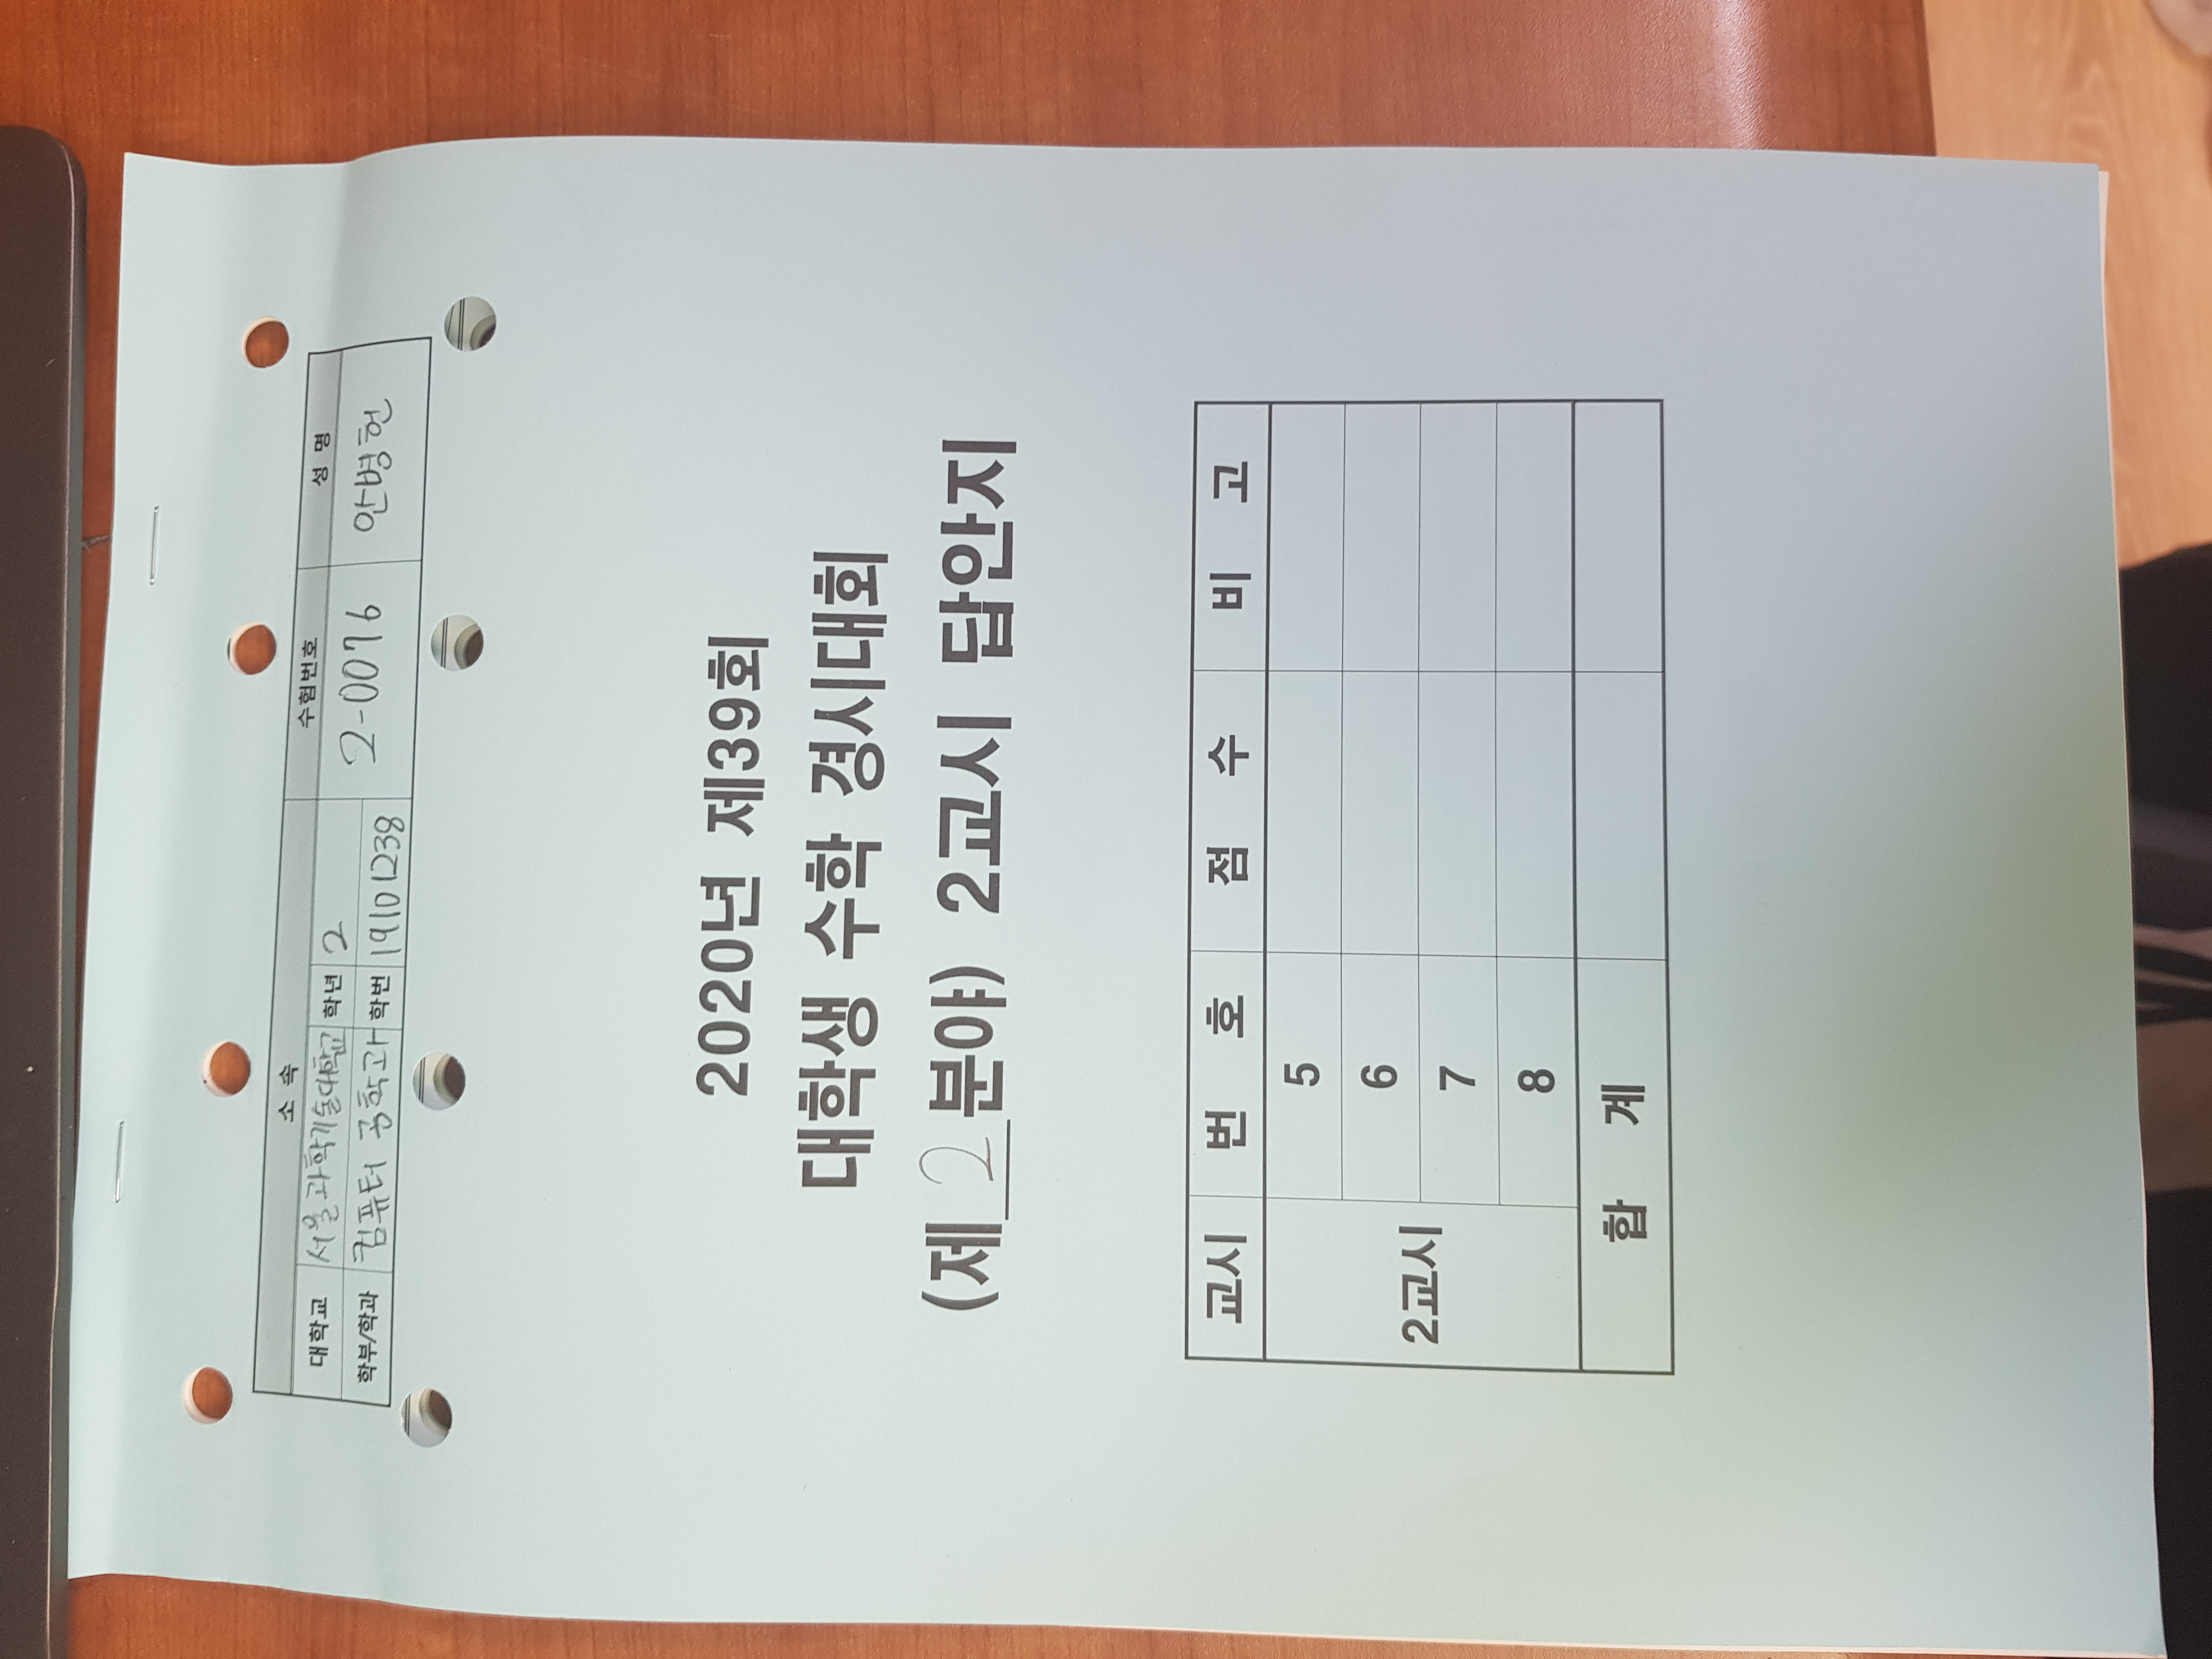 소 속 수험번호 성 명
대학교 서울과학기술대학교 학년 2 2-0076 안병헌
학부/학과 컴퓨터 공학과 학번 19101238
2020년 제39회
대학생 수학 경시대회
(제 2 분야) 2교시 답안지
교시 번 호 점 수 비 고
2교시
5
6
7
8
합 계